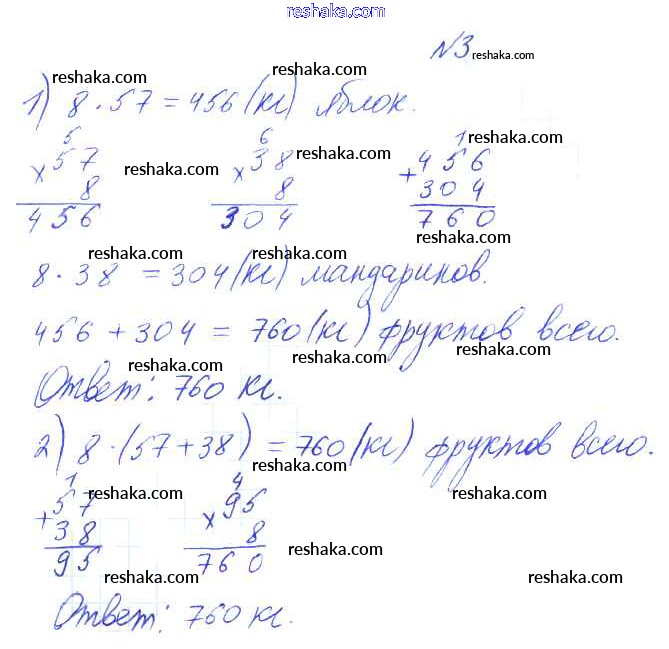 reshaka.com
№3 reshaka.com
reshaka.com reshaka.com
1) 8 · 57 = 456 (кг) яблок.
5 6 1
× 57 reshaka.com × 38 reshaka.com + 456 reshaka.com
8 8 304
456 304 760
reshaka.com reshaka.com reshaka.com
8 · 38 = 304 (кг) мандаринов.
456 + 304 = 760 (кг) фруктов всего.
reshaka.com reshaka.com reshaka.com
Ответ: 760 кг.
2) 8 · (57 + 38) = 760 (кг) фруктов всего.
reshaka.com
1 4
+ 57 × 95 reshaka.com
38 8
95 760
reshaka.com reshaka.com reshaka.com
Ответ: 760 кг.